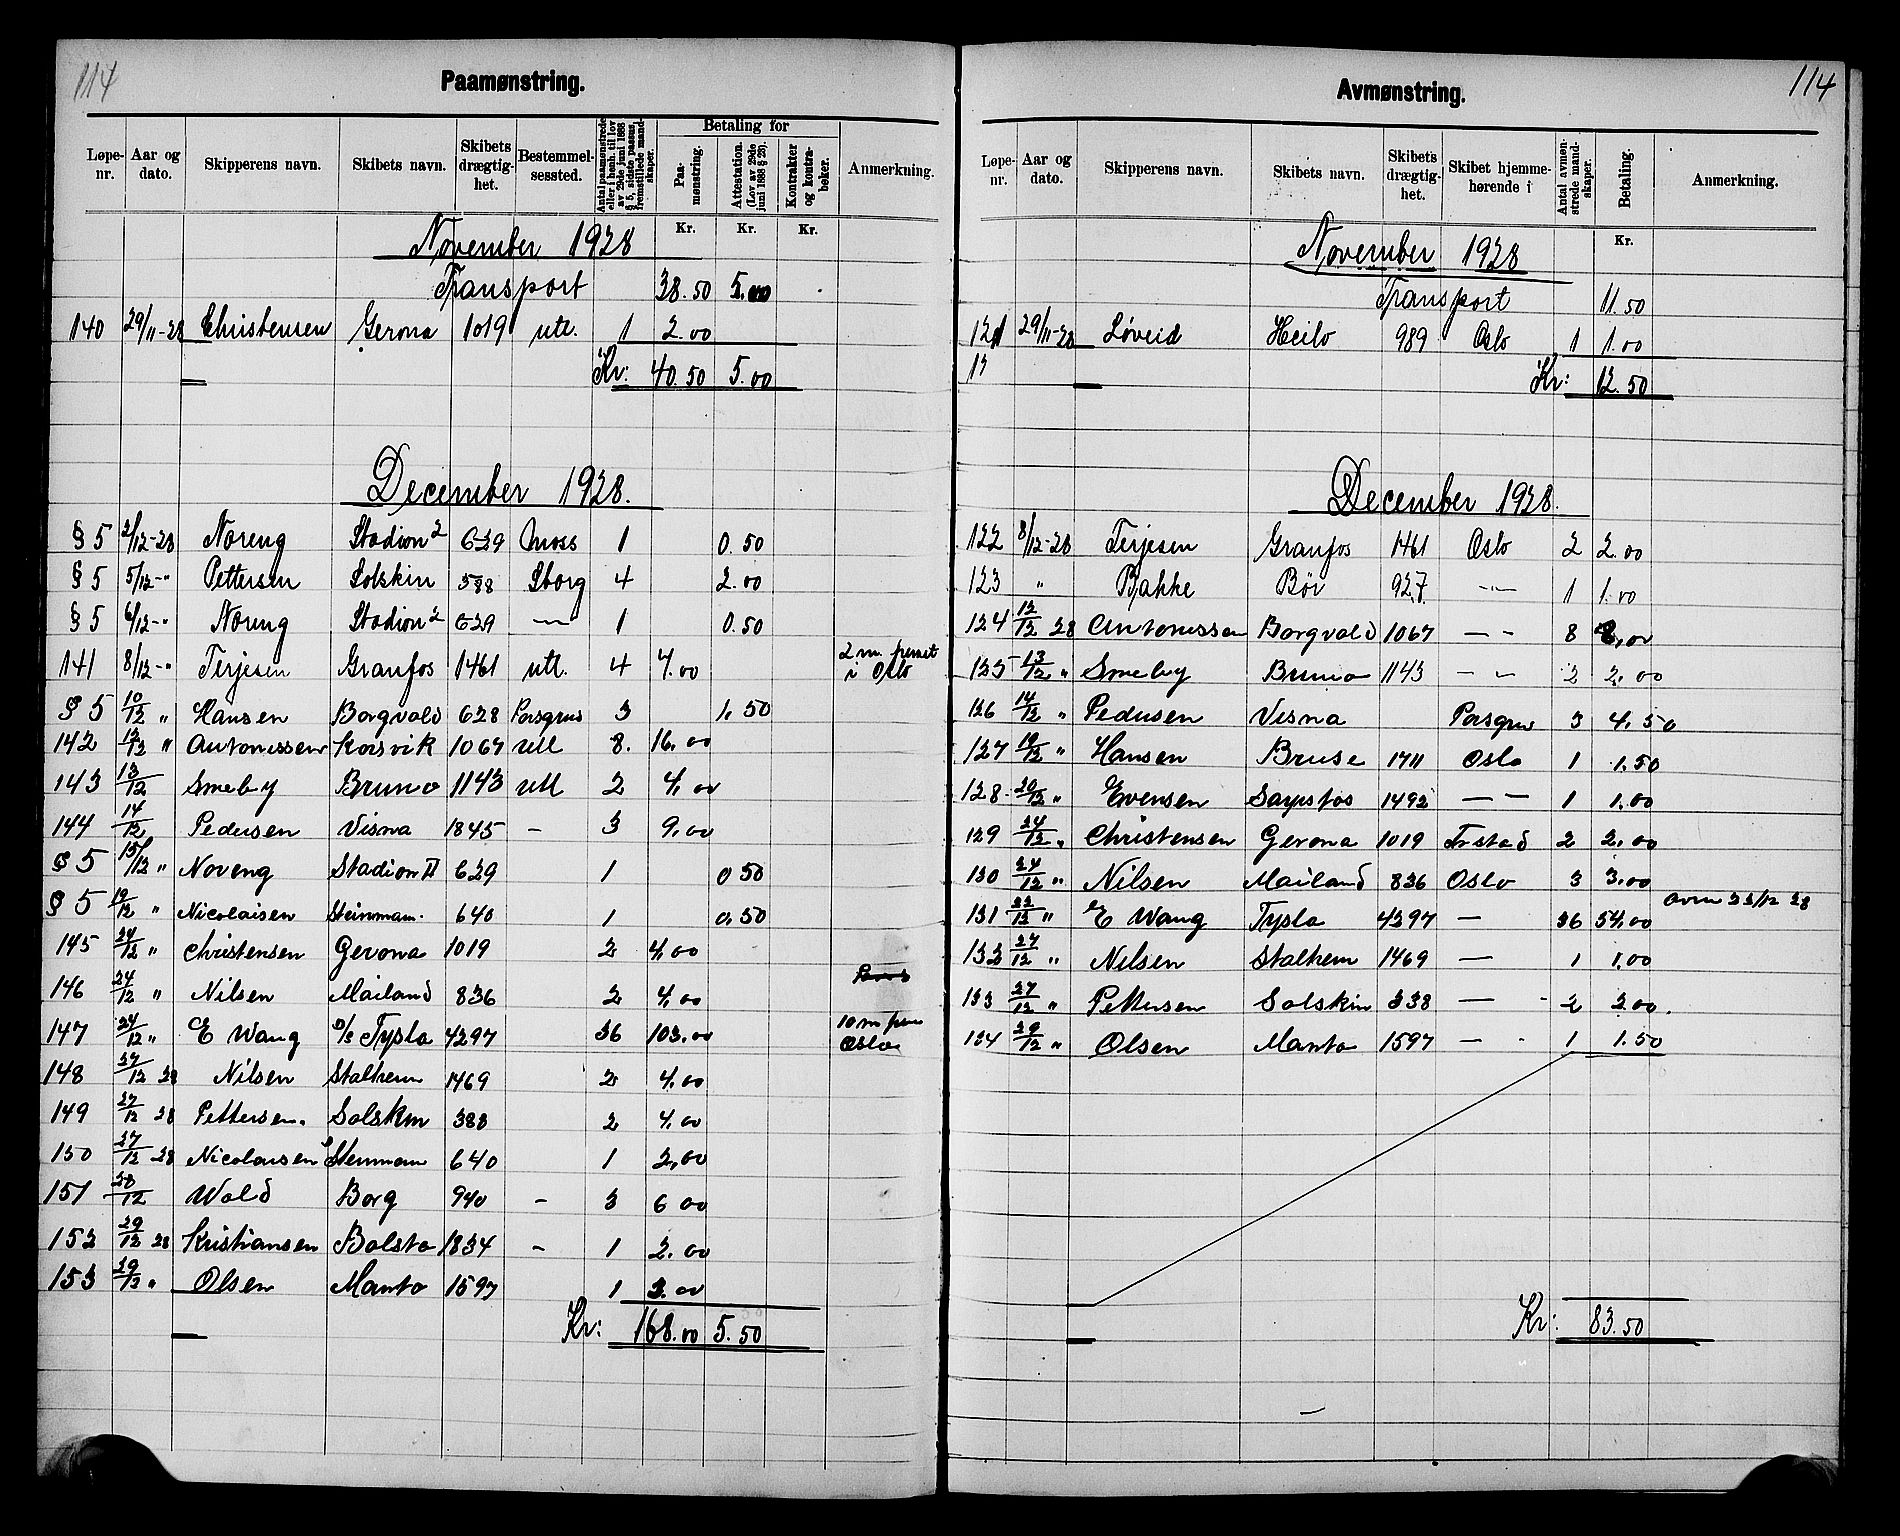 114
Paamønstring.
Løpe-nr. | Aar og dato. | Skipperens navn. | Skibets navn. | Skibets drægtig-het. | Bestemmel-sessted. | Antal paamønstrede eller i henh. til lov av 29de juni 1888 § 5, sidste passus, fremstillede mand-skaper. | Betaling for | Paa-mønstring. | Attestation. (Lov av 29de juni 1888 § 23). | Kontrakter og kontra-bøker. | Anmerkning.
Kr. Kr. Kr.
November 1928
Transport 38.50 5.00
140 29/11-28 Christensen Gerona 1019 utl. 1 2.00
Kr: 40.50 5.00
December 1928.
§ 5 2/12-28 Noreng Stadion 2 629 Moss 1 0.50
§ 5 5/12-" Pettersen Solskin 388 Sborg 4 2.00
§ 5 6/12-" Noreng Stadion 2 629 — 1 0.50
141 8/12-" Terjesen Granfos 1461 utl. 4 4.00 2 m. pr i Oslo
§ 5 10/12 " Hansen Borgvald 628 Porsgrun 3 1.50
142 12/12 " Antonissen Korsvik 1067 utl 8. 16.00
143 13/12 Smeby Bruno 1143 utl 2 4.00
144 14/12 Pedersen Visna 1845 - 3 9.00
§ 5 15/12 " Noreng Stadion II 629 1 0 50
§ 5 19/12 " Nicolaisen Steinmann. 640 1 0.50
145 24/12 " Christensen Gerona 1019 2 4.00
146 24/12 " Nilsen Mailand 836 2 4.00
147 24/12 " E Wang D/S Tysla 4297 36 103.00 10 m Oslo
148 27/12 28 Nilsen Stalheim 1469 2 4.00
149 27/12 28 Pettersen. Solskin 388 2 4.00
150 27/12 28 Nicolaisen Steinmann 640 1 2.00
151 28/12 Wold Borg 940 - 3 6 00
152 29/12 28 Kristiansen Balsta 1834 - 1 2.00
153 29/12 " Olsen Manto 1597 1 3.00
Kr: 168.00 5.50
114
Avmønstring.
Løpe-nr. | Aar og dato. | Skipperens navn. | Skibets navn. | Skibets drægtig-het. | Skibet hjemme-hørende i | Antal avmøn-strede mand-skaper. | Betaling. | Anmerkning.
Kr.
November 1928
Transport 11.50
121 29/11-28 Løveid Heilo 989 Oslo 1 1.00
Kr: 12.50
December 1928.
122 8/12-28 Terjesen Granfos 1461 Oslo 2 2.00
123 " Bakke Bör 927. -"- 1 1.00
124 12/12 28 Antonissen Borgvald 1067 — - 8 8.00
125 13/12 " Smeby Bruno 1143 — - 2 2.00
126 14/12 " Pedersen Visna Porsgrun 3 4.50
127 19/12 " Hansen Bruse 1711 Oslo 1 1.50
128 20/12 " Evensen Sarpsfos 1492 — - 1 1.00
129 24/12 " Christensen Gerona 1019 Frstad 2 2.00
130 24/12 " Nilsen Mailand 836 Oslo 3 3.00
131 22/12 " E Wang Tysla 4297 — 36 54.00 avm 22/12 28
132 27/12 " Nilsen Stalheim 1469 — 1 1.00
133 27/12 " Pettersen Solskin 338 — - 2 2.00.
134 29/12 " Olsen Manto 1597 — - 1 1.50
Kr: 83.50